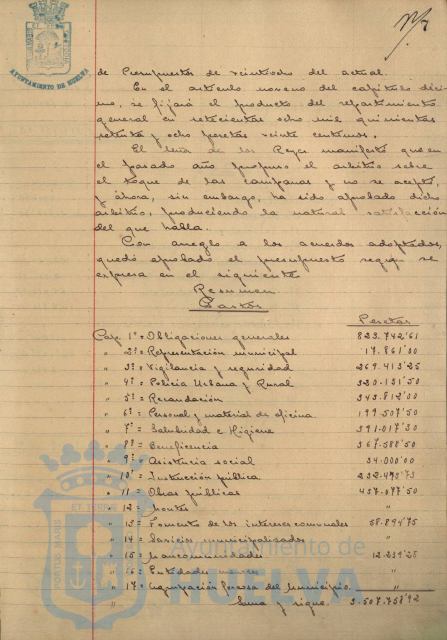 AYUNTAMIENTO DE HUELVA
de Presupuestos de veintiocho del actual.
En el artículo noveno del capítulo déci-
mo, se fijará el producto del repartimiento
general en setecientas ocho mil quinientas
setenta y ocho pesetas veinte centimos.
El Señor de los Reyes manifestó que en
el pasado año propuso el arbitrio sobre
el toque de las campanas y no se aceptó,
y ahora, sin embargo, ha sido aprobado dicho
arbitrio, produciendo la natural satisfacción
del que habla.
Con arreglo a los acuerdos adoptados,
quedó aprobado el presupuesto según se
expresa en el siguiente
Resumen
Gastos
Pesetas
Cap. 1º = Obligaciones generales 823.742'61
" 2º = Representación municipal 17.861'00
" 3º = Vigilancia y seguridad 269.413'25
" 4º = Policia Urbana y Rural 320.131'50
" 5º = Recaudación 343.812'00
" 6º = Personal y material de oficina 199.507'50
" 7º = Salubridad e Higiene 391.017'50
" 8º = Beneficencia 367.588'50
" 9º = Asistencia social 34.000'00
" 10º = Instrucción pública 232.473'75
" 11 = Obras públicas 437.077'50
" 12 = Montes "
" 13 = Fomento de los intereses comunales 58.894'75
" 14 = Servicios municipalizados "
" 15 = Mancomunidades 12.239'25
" 16 = Entidades menores "
" 17 = Agrupación forzosa del Municipio. "
" Suma y sigue. 3.507.758'92
ET TERRAE
PORTUS MARIS
Ayuntamiento de
HUELVA